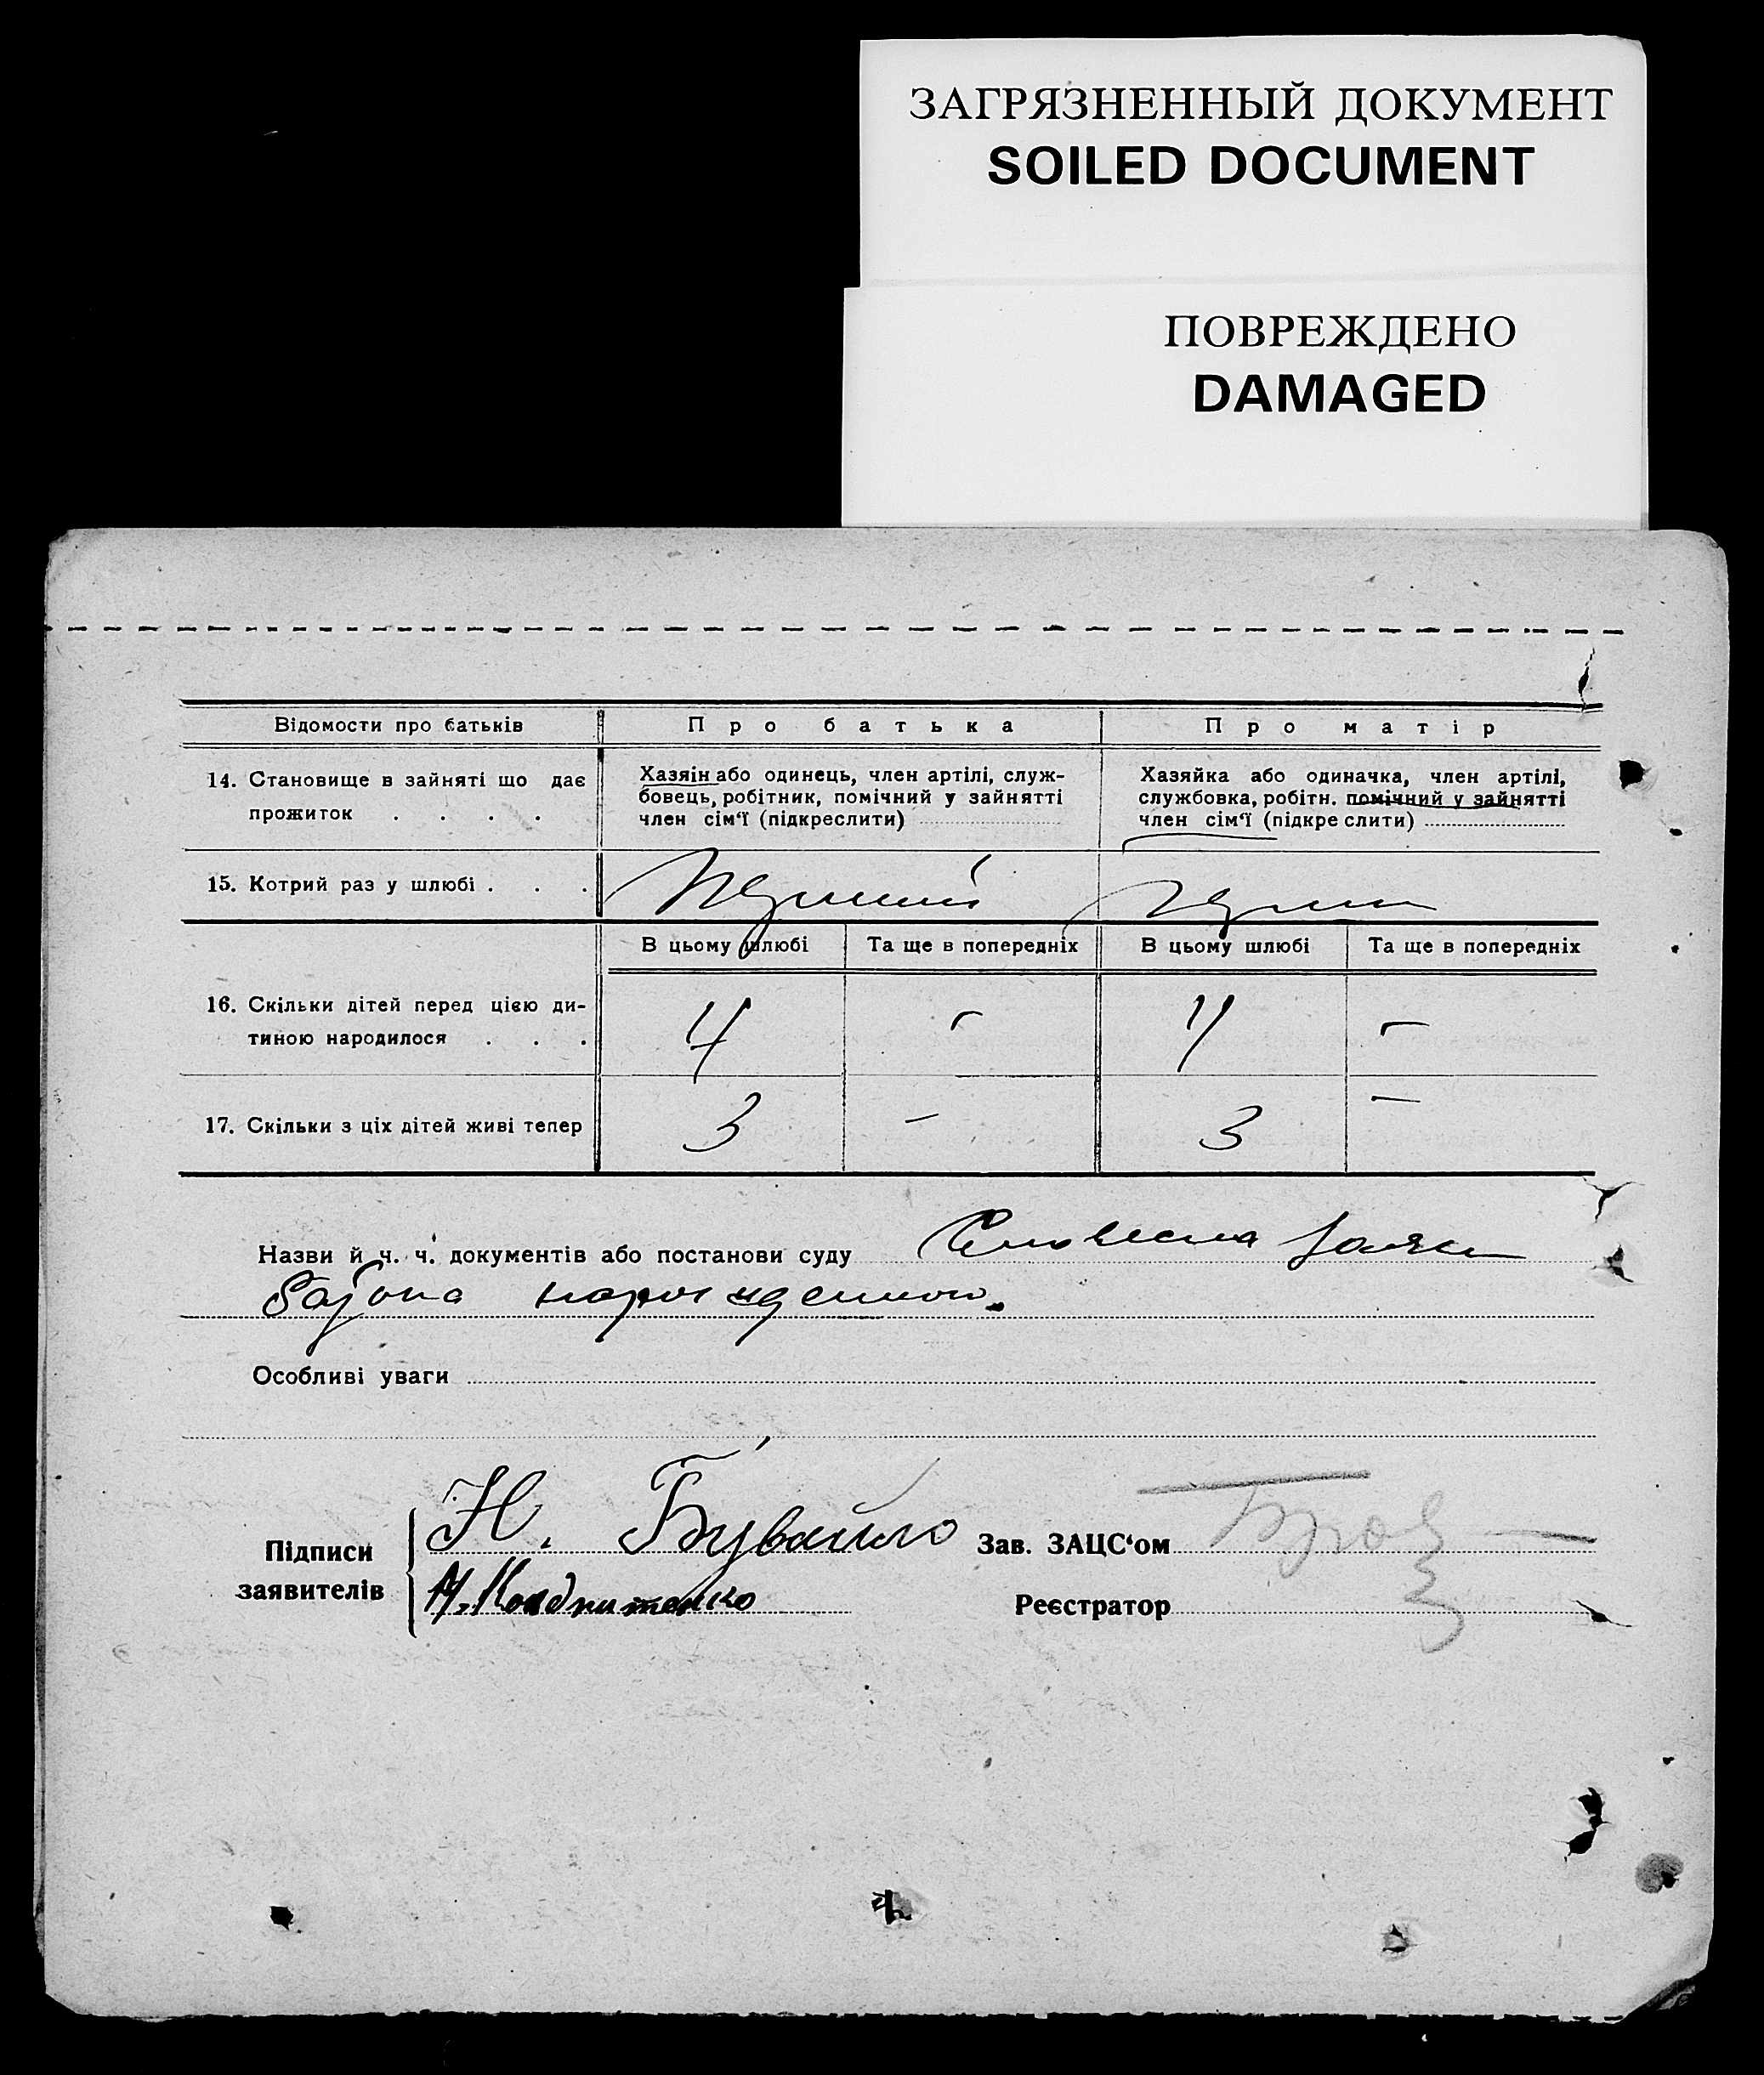 ЗАГРЯЗНЕННЫЙ ДОКУМЕНТ
SOILED DOCUMENT
ПОВРЕЖДЕНО
DAMAGED
Відомости про батьків
Про батька
Про матір
14. Становище в зайняті що дає
прожиток . . . .
Хазяін або одинець, член артілі, служ-
бовець, робітник, помічний у зайнятті
член сім'ї (підкреслити)
Хазяйка або одиначка, член артілі,
службовка, робітн. помічний у зайнятті
член сім'ї (підкреслити)
15. Котрий раз у шлюбі . . .
Перший
В цьому шлюбі
Та ще в попередніх
В цьому шлюбі
Та ще в попередніх
16. Скільки дітей перед цією ди-
тиною народилося . . .
4 - 4 -
17. Скільки з ціх дітей живі тепер
3 - 3 -
Назви й ч. ч. документів або постанови суду Словесна
Особливі уваги
Підписи
заявителів
Н. Бувайло
Зав. ЗАЦС'ом
Реєстратор